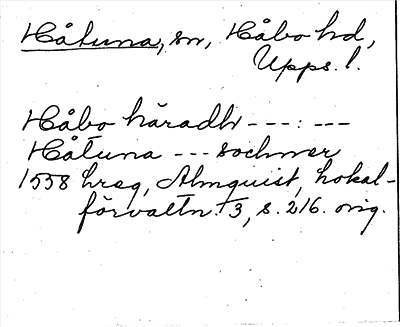 Håtuna, sn, Håbo hd,
Upps. l.
Håbo häradh ---:---
Håtuna --- sochner
1558 hreg, Almquist, Lokal-
förvaltn. 3, s. 216. orig.